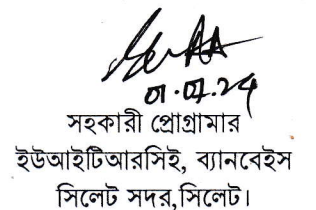 01.07.24
সহকারী প্রোগ্রামার
ইউআইটিআরসিই, ব্যানবেইস
সিলেট সদর,সিলেট।